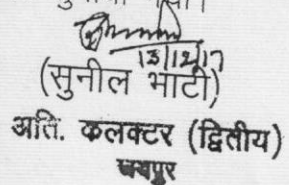 13/12/17
(सुनील भाटी)
अति. कलक्टर (द्वितीय)
जयपुर